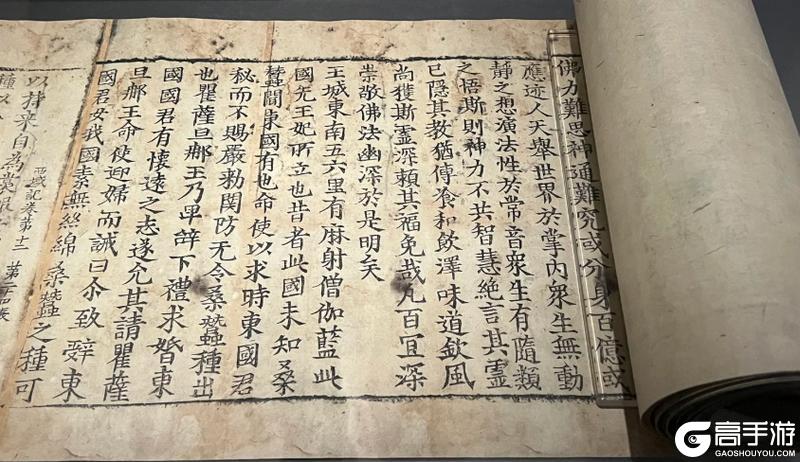 佛力難思神通難究或分身百億或
應迹人天舉世界於掌內衆生無動
靜之想演法性於常音衆生有隨類
之悟斯則神力不共智慧絶言其靈
已隱其教猶傳飡和飲澤味道欽風
尚獲斯靈深賴其福免哉凡百宜深
崇敬佛法幽深於是明矣
王城東南五六里有麻射僧伽藍此
國先王妃所立也昔者此國未知桑
蠶聞東國有也命使以求時東國君
秘而不賜嚴勑関防无令桑蠶種出
也瞿薩旦那王乃卑辝下禮求婚東
國國君有懷遠之志遂允其請瞿薩
旦那王命使迎婦而誡曰尒致辭東
國君女我國素無絲綿桑蠶之種可
西域記卷第十二 第二十
以持來自為裳服
種以
高手游
GAOSHOUYOU.COM